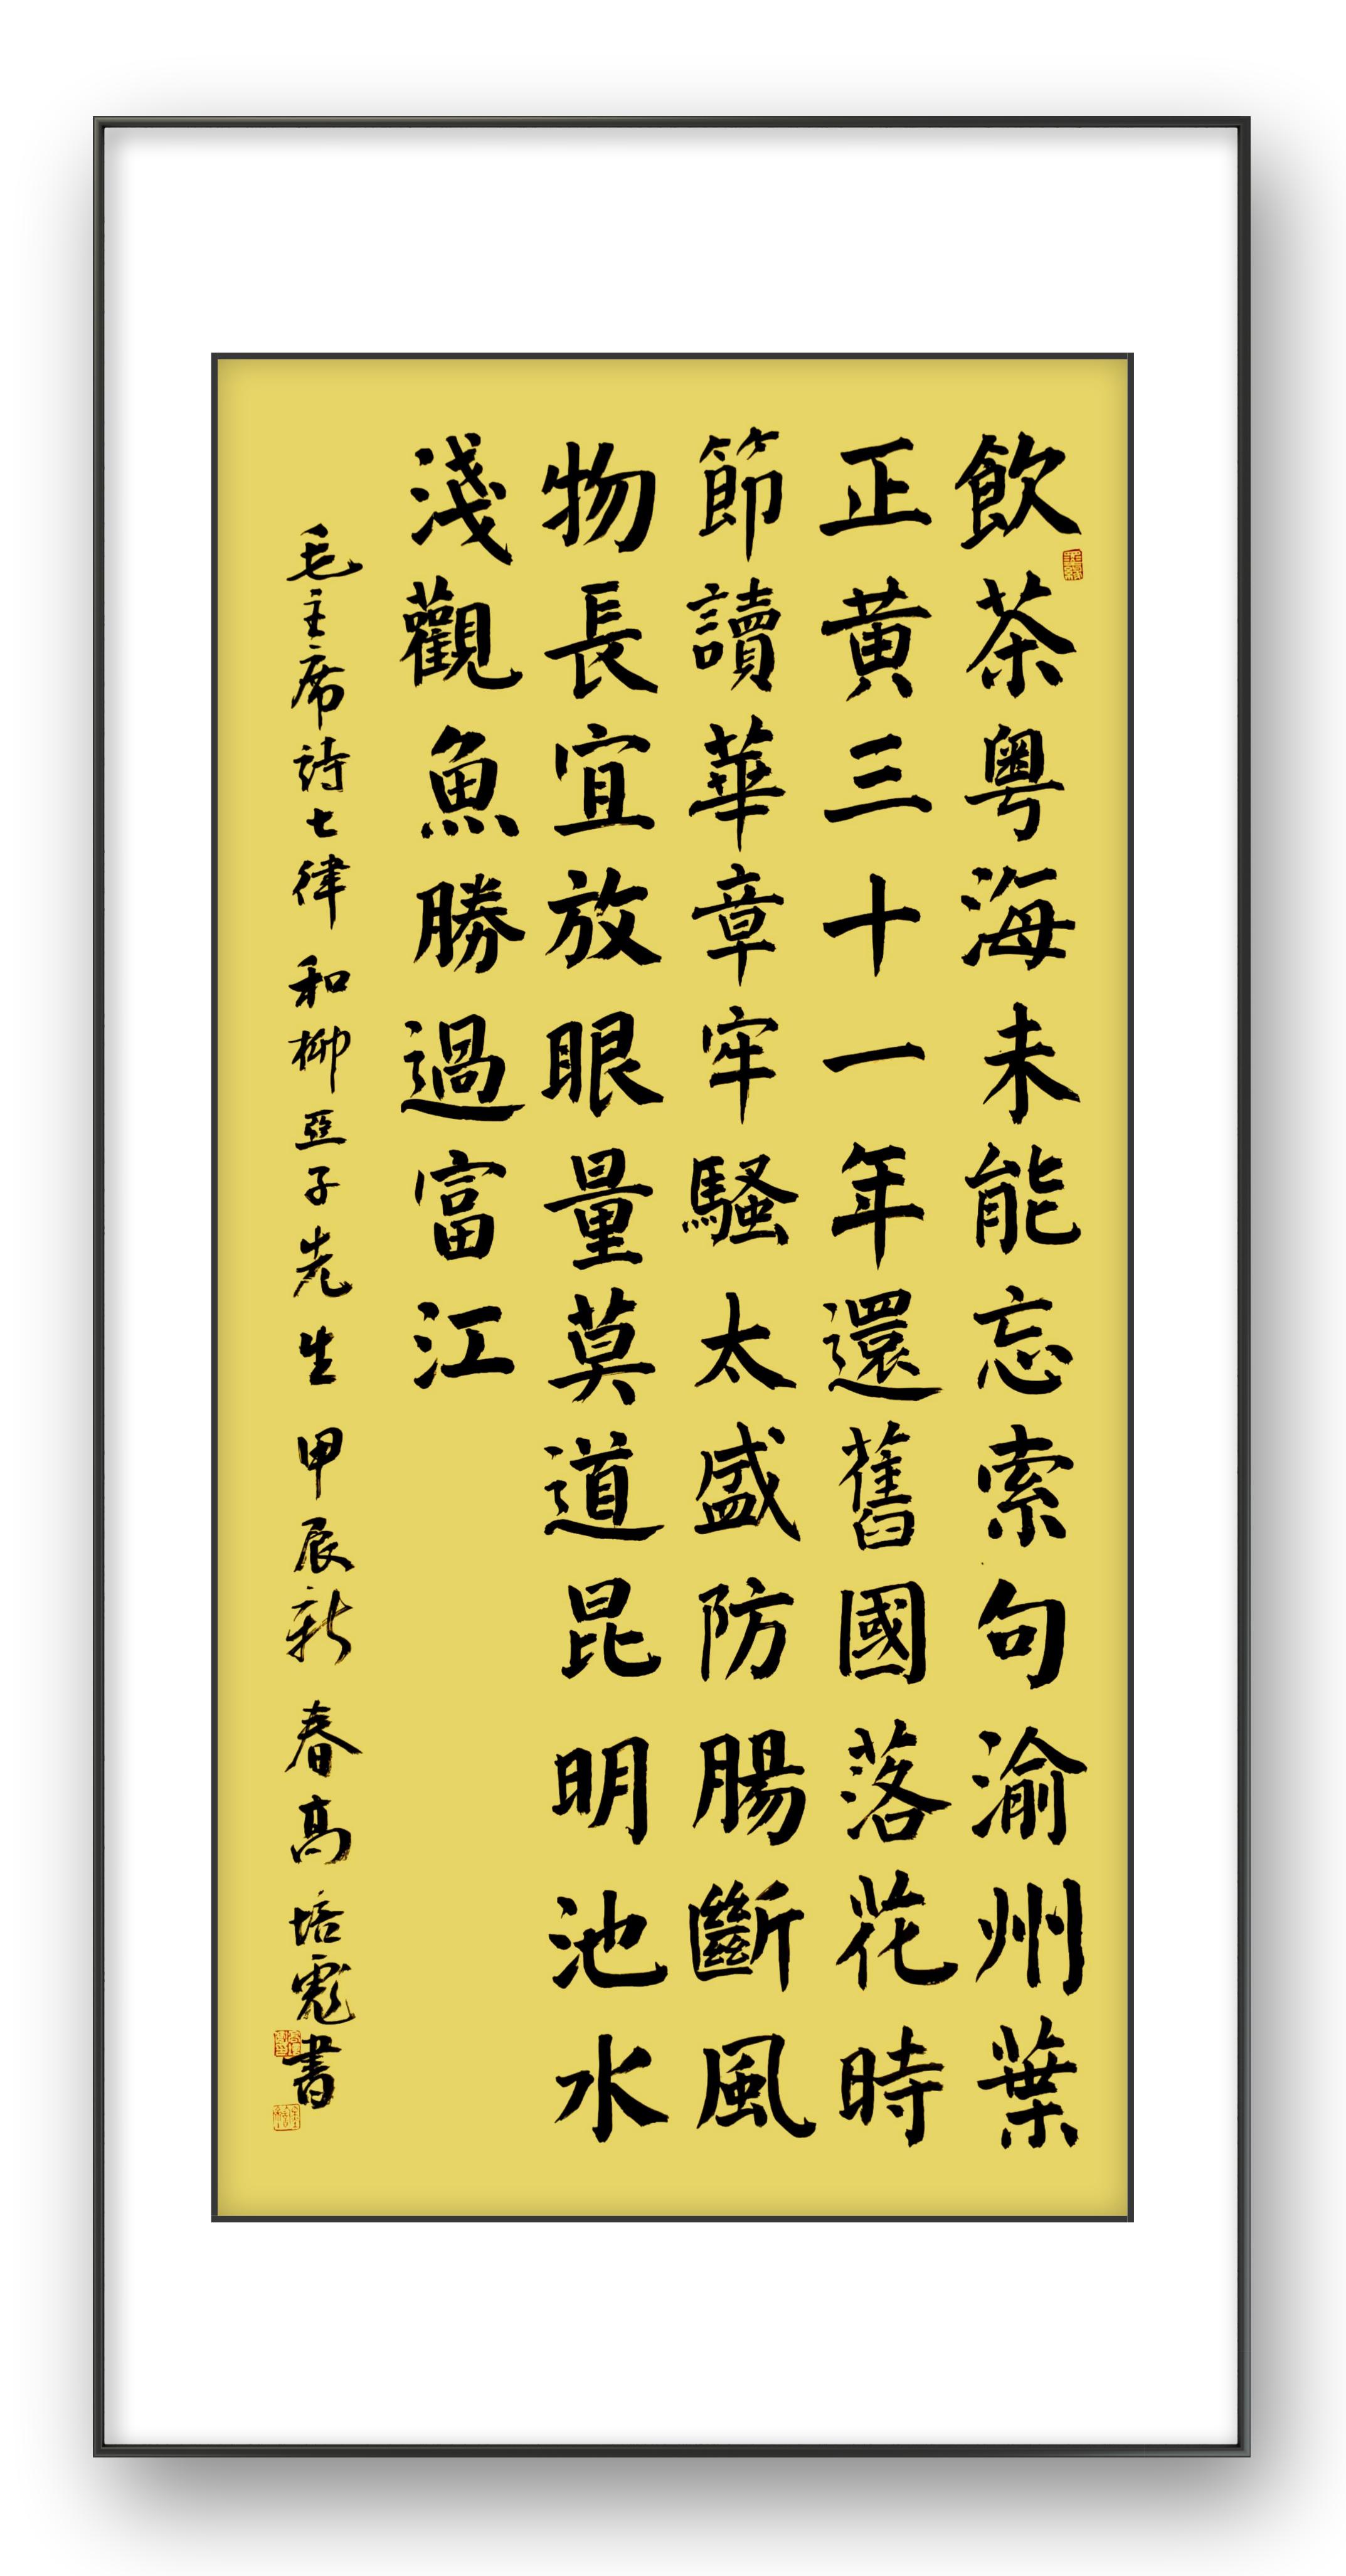 飲茶粵海未能忘索句渝州葉
正黃三十一年還舊國落花時
節讀華章牢騷太盛防腸斷風
物長宜放眼量莫道昆明池水
淺觀魚勝過富江
毛主席詩七律和柳亞子先生甲辰新春高培彪書